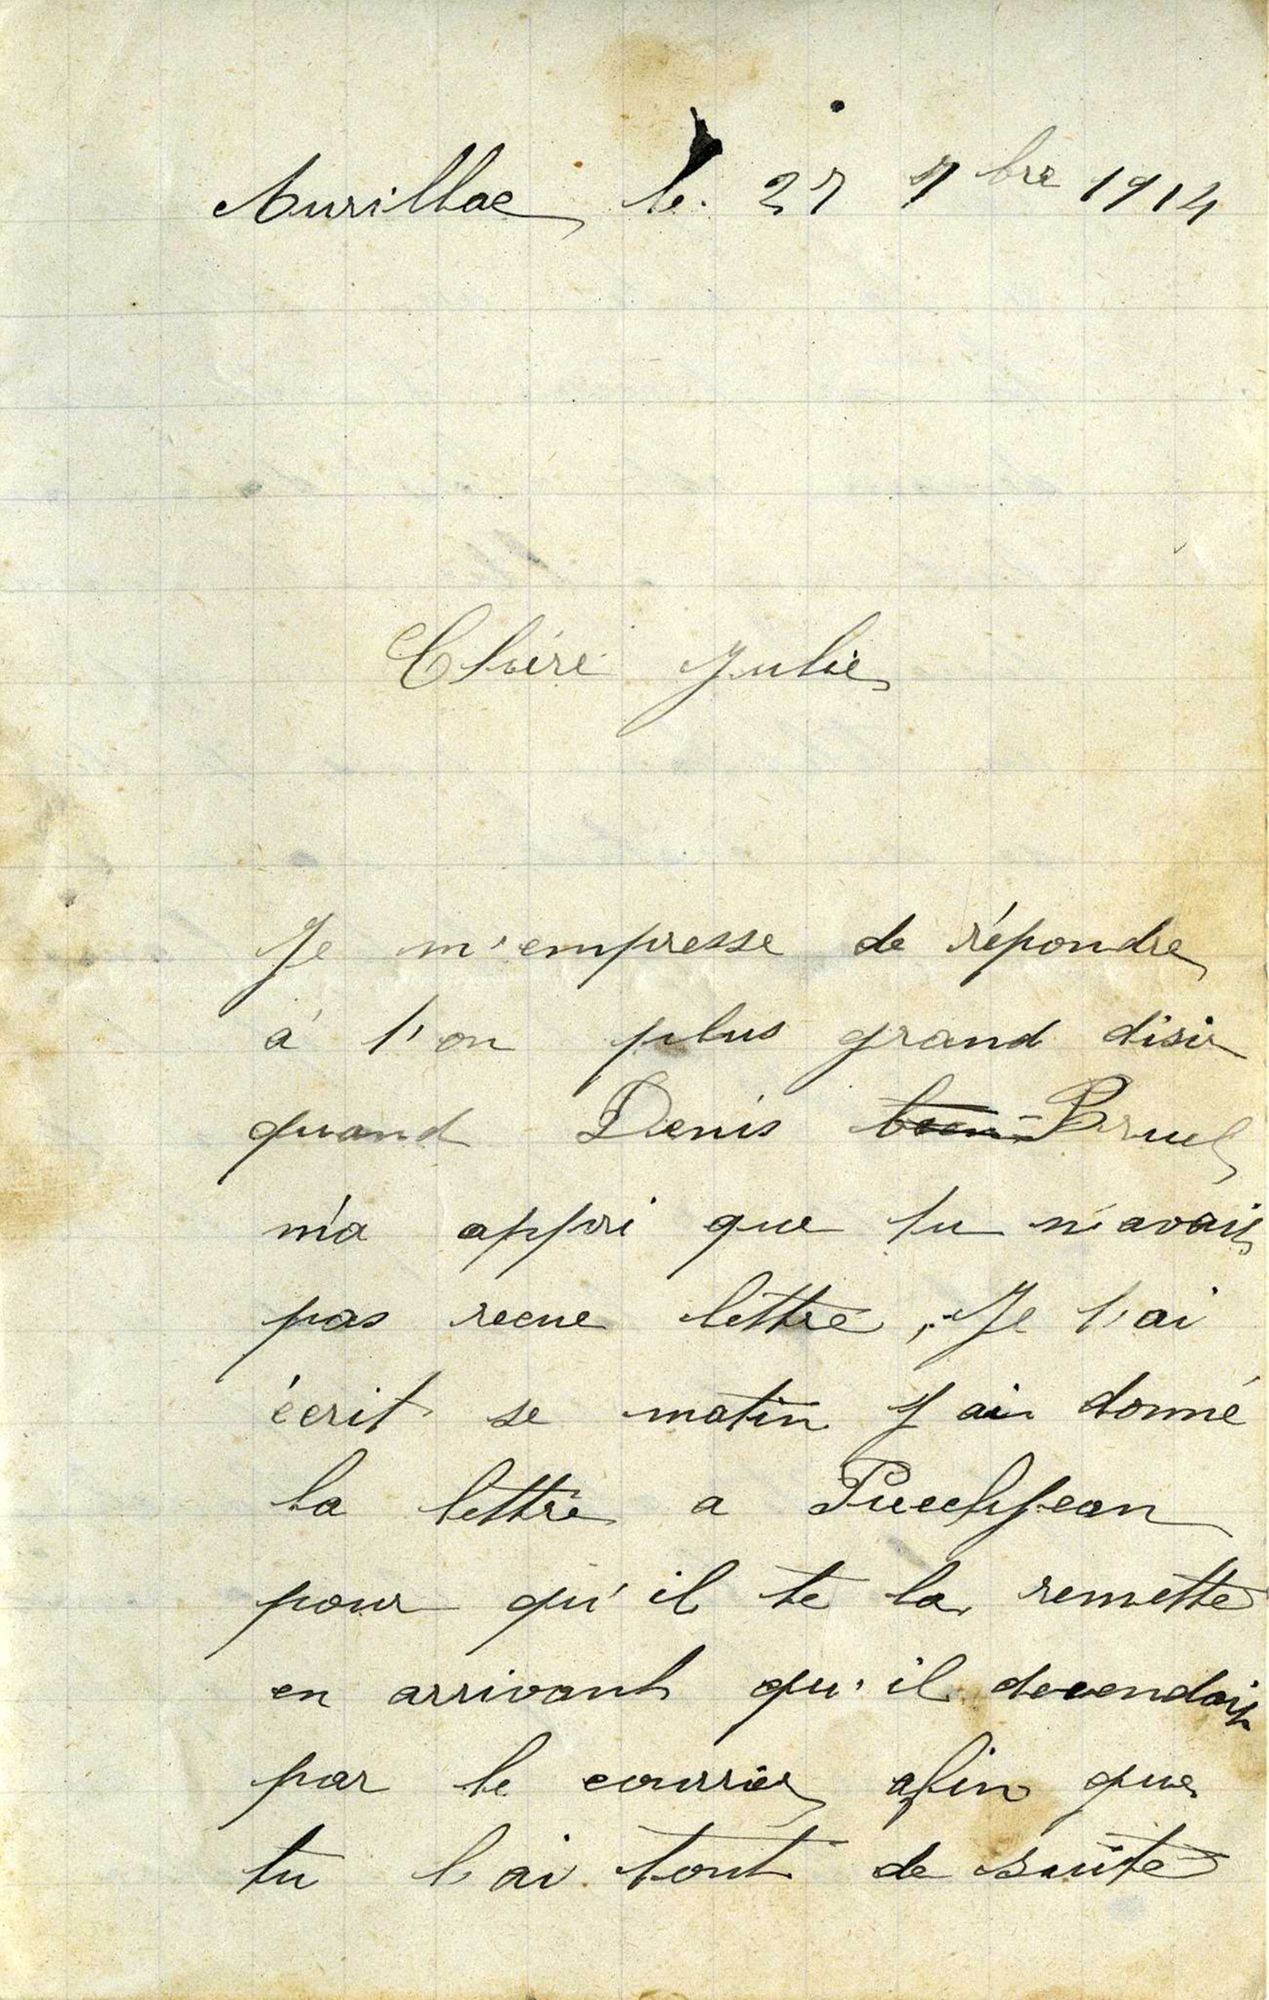 Aurillac le. 27 7bre 1914
Chère Julie
Je m'empresse de répondre
à t'on plus grand disir
quand Denis Bruel
m'a appri que tu n'avais
pas recue lettre, Je t'ai
écrit se matin J'ai donné
la lettre a PuechJean
pour qu'il te la remette
en arrivant qu'il decendais
par le courrier afin que
tu l'ai tout de suite